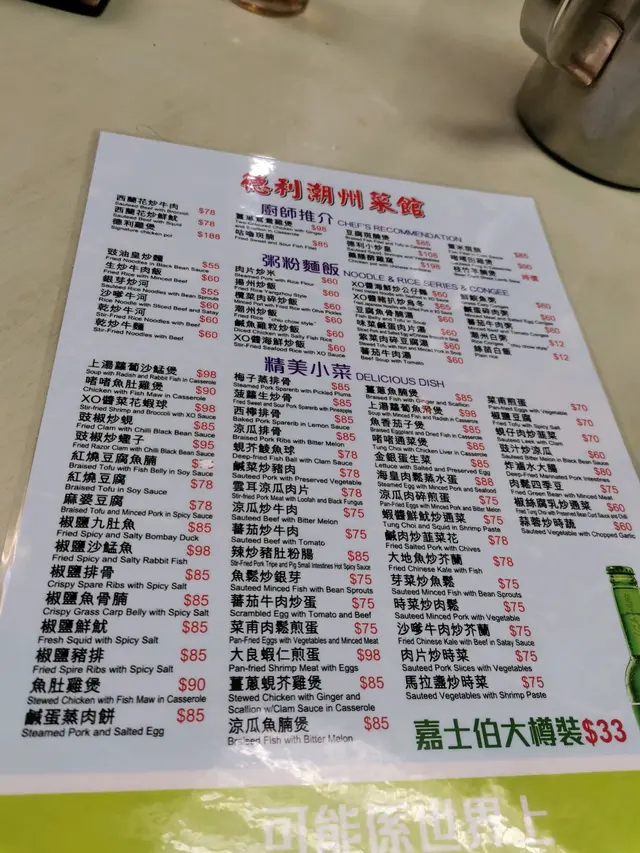 德利潮州菜館
廚師推介 CHEF'S RECOMMENDATION
西蘭花炒牛肉 $78
Sauteed Beef with Broccoli
西蘭花炒鮮魷 $78
德利雞煲 $188
Signature chicken pot
$98
$85
Fried Sweet and Sour Fish Fillet
豆腐
$85
德利小炒皇 $108
$198
粥粉麵飯 NOODLE & RICE SERIES & CONGEE
豉油皇炒麵 $55
Fried Noodles in Black Bean Sauce
生炒牛肉飯 $60
Fried Rice with Minced Beef
銀芽炒河 $55
Sauteed Rice Noodles with Bean Sprouts
沙嗲牛河 $60
Rice Noodle with Sliced Beef and Satay
乾炒牛河 $60
Stir-Fried Rice Noodles with Beef
乾炒牛麵 $60
Stir-Fried Noodles with Beef
肉片炒米 $60
揚州炒飯 $60
欖菜肉碎炒飯 $60
潮州炒飯 $60
鹹魚雞粒炒飯 $60
Diced Chicken with Salty Fish Rice
XO醬海鮮炒飯 $60
Stir-Fried Seafood Rice with XO Sauce
XO醬海鮮炒公仔麵 $60
豆腐魚骨腩湯
味菜鹹蛋肉片湯
紫菜肉碎豆腐湯
蕃茄牛肉湯 $60
Beef Soup with Tomato
蕃茄牛肉粥
潮州白粥 $12
$12
精美小菜 DELICIOUS DISH
上湯蘿蔔沙艋煲 $98
Soup with Radish and Rabbit Fish in Casserole
啫啫魚肚雞煲 $90
Chicken with Fish Maw in Casserole
XO醬菜花蝦球 $98
Stir-fried Shrimp and Broccoli with XO Sauce
豉椒炒蜆 $85
Fried Clam with Chilli Black Bean Sauce
豉椒炒蟶子 $95
Fried Razor Clam with Chilli Black Bean Sauce
紅燒豆腐魚腩
Braised Tofu with Fish Belly in Soy Sauce
紅燒豆腐 $78
Braised Tofu in Soy Sauce
麻婆豆腐 $78
Braised Tofu and Minced Pork in Spicy Sauce
椒鹽九肚魚 $85
Fried Spicy and Salty Bombay Duck
椒鹽沙艋魚 $98
Fried Spicy and Salty Rabbit Fish
椒鹽排骨 $85
Crispy Spare Ribs with Spicy Salt
椒鹽魚骨腩 $85
Crispy Grass Carp Belly with Spicy Salt
椒鹽鮮魷 $85
Fresh Squid with Spicy Salt
椒鹽豬排 $85
Fried Spire Ribs with Spicy Salt
魚肚雞煲 $90
Stewed Chicken with Fish Maw in Casserole
鹹蛋蒸肉餅 $85
Steamed Pork and Salted Egg
梅子蒸排骨 $85
Steamed Pork Spareribs with Pickled Plums
菠蘿生炒骨 $85
Fried Sweet and Sour Pork Sparerib with Pineapple
西檸排骨 $85
Braised Pork Spareribs in Lemon Sauce
涼瓜排骨 $85
Braised Pork Ribs with Bitter Melon
蜆芥鯪魚球 $85
Deep-fried Fish Ball with Clam Sauce
鹹菜炒豬肉 $78
Sauteed Pork with Preserved Vegetable
雲耳涼瓜肉片 $78
Stir-fried Pork Meat with Loofah and Black Fungus
涼瓜炒牛肉 $75
Sauteed Beef with Bitter Melon
蕃茄炒牛肉 $75
Sauteed Beef with Tomato
辣炒豬肚粉腸 $85
Stir-Fried Pork Tripe and Pig Small Intestines Hot Spicy Sauce
魚鬆炒銀芽 $75
Sauteed Minced Fish with Bean Sprouts
蕃茄牛肉炒蛋 $75
Scrambled Egg with Tomato and Beef
菜甫肉鬆煎蛋 $75
Pan-Fried Eggs with Vegetables and Minced Meat
大良蝦仁煎蛋 $98
Pan-fried Shrimp Meat with Eggs
薑蔥蜆芥雞煲 $85
Stewed Chicken with Ginger and
Scallion w/Clam Sauce in Casserole
涼瓜魚腩煲 $85
Braised Fish with Bitter Melon
薑蔥魚腩煲 $85
上湯蘿蔔魚滑煲 $98
魚香茄子煲 $85
啫啫通菜煲 $85
Tung Choi with Chicken Liver in Casserole
金銀蛋生菜 $85
Lettuce with Salted and Preserved Egg
海皇肉鬆蒸水蛋 $88
Steamed Egg with Minced Pork and Seafood
涼瓜肉碎煎蛋 $75
Pan-Fried Eggs with Minced Pork and Bitter Melon
蝦醬鮮魷炒通菜 $75
Tung Choi and Squid in Shrimp Paste
鹹肉炒韮菜花 $78
Fried Salted Pork with Chives
大地魚炒芥蘭 $78
Fried Chinese Kale with Fish
芽菜炒魚鬆 $75
Sauteed Minced Fish with Bean Sprouts
時菜炒肉鬆 $75
Sauteed Minced Pork with Vegetable
沙嗲牛肉炒芥蘭 $75
Fried Chinese Kale with Beef in Satay Sauce
肉片炒時菜 $75
Sauteed Pork Slices with Vegetables
馬拉盞炒時菜 $75
Sauteed Vegetables with Shrimp Paste
菜甫煎蛋 $70
椒鹽豆腐 $70
Tofu with Spicy Salt
蝦仔肉炒韮菜 $70
豉汁炒涼瓜 $60
炸滷水大腸 $80
Deep-Fried Marinated Pork Intestines
肉鬆四季豆 $75
Fried Green Bean with Minced Meat
椒絲腐乳炒通菜 $60
蒜蓉炒時蔬 $60
Sauteed Vegetable with Chopped Garlic
嘉士伯大樽裝$33
可能係世界上